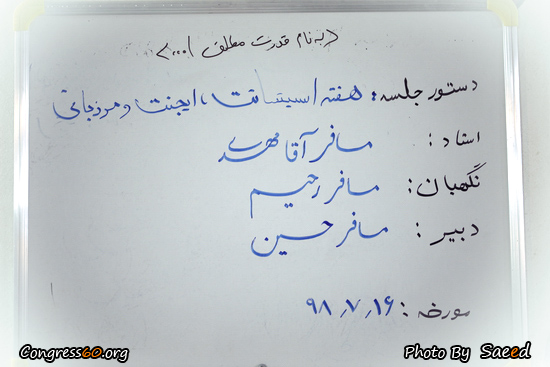 (به نام قدرت مطلق ا....)
دستور جلسه: هفته اسیستانت، ایجنت و مرزبانی
استاد: مسافر آقا مهدی
نگهبان: مسافر رحیم
دبیر: مسافر حسین
مورخه: ۹۸٫۷٫۱۶
Congress60.org
Photo By Saeed